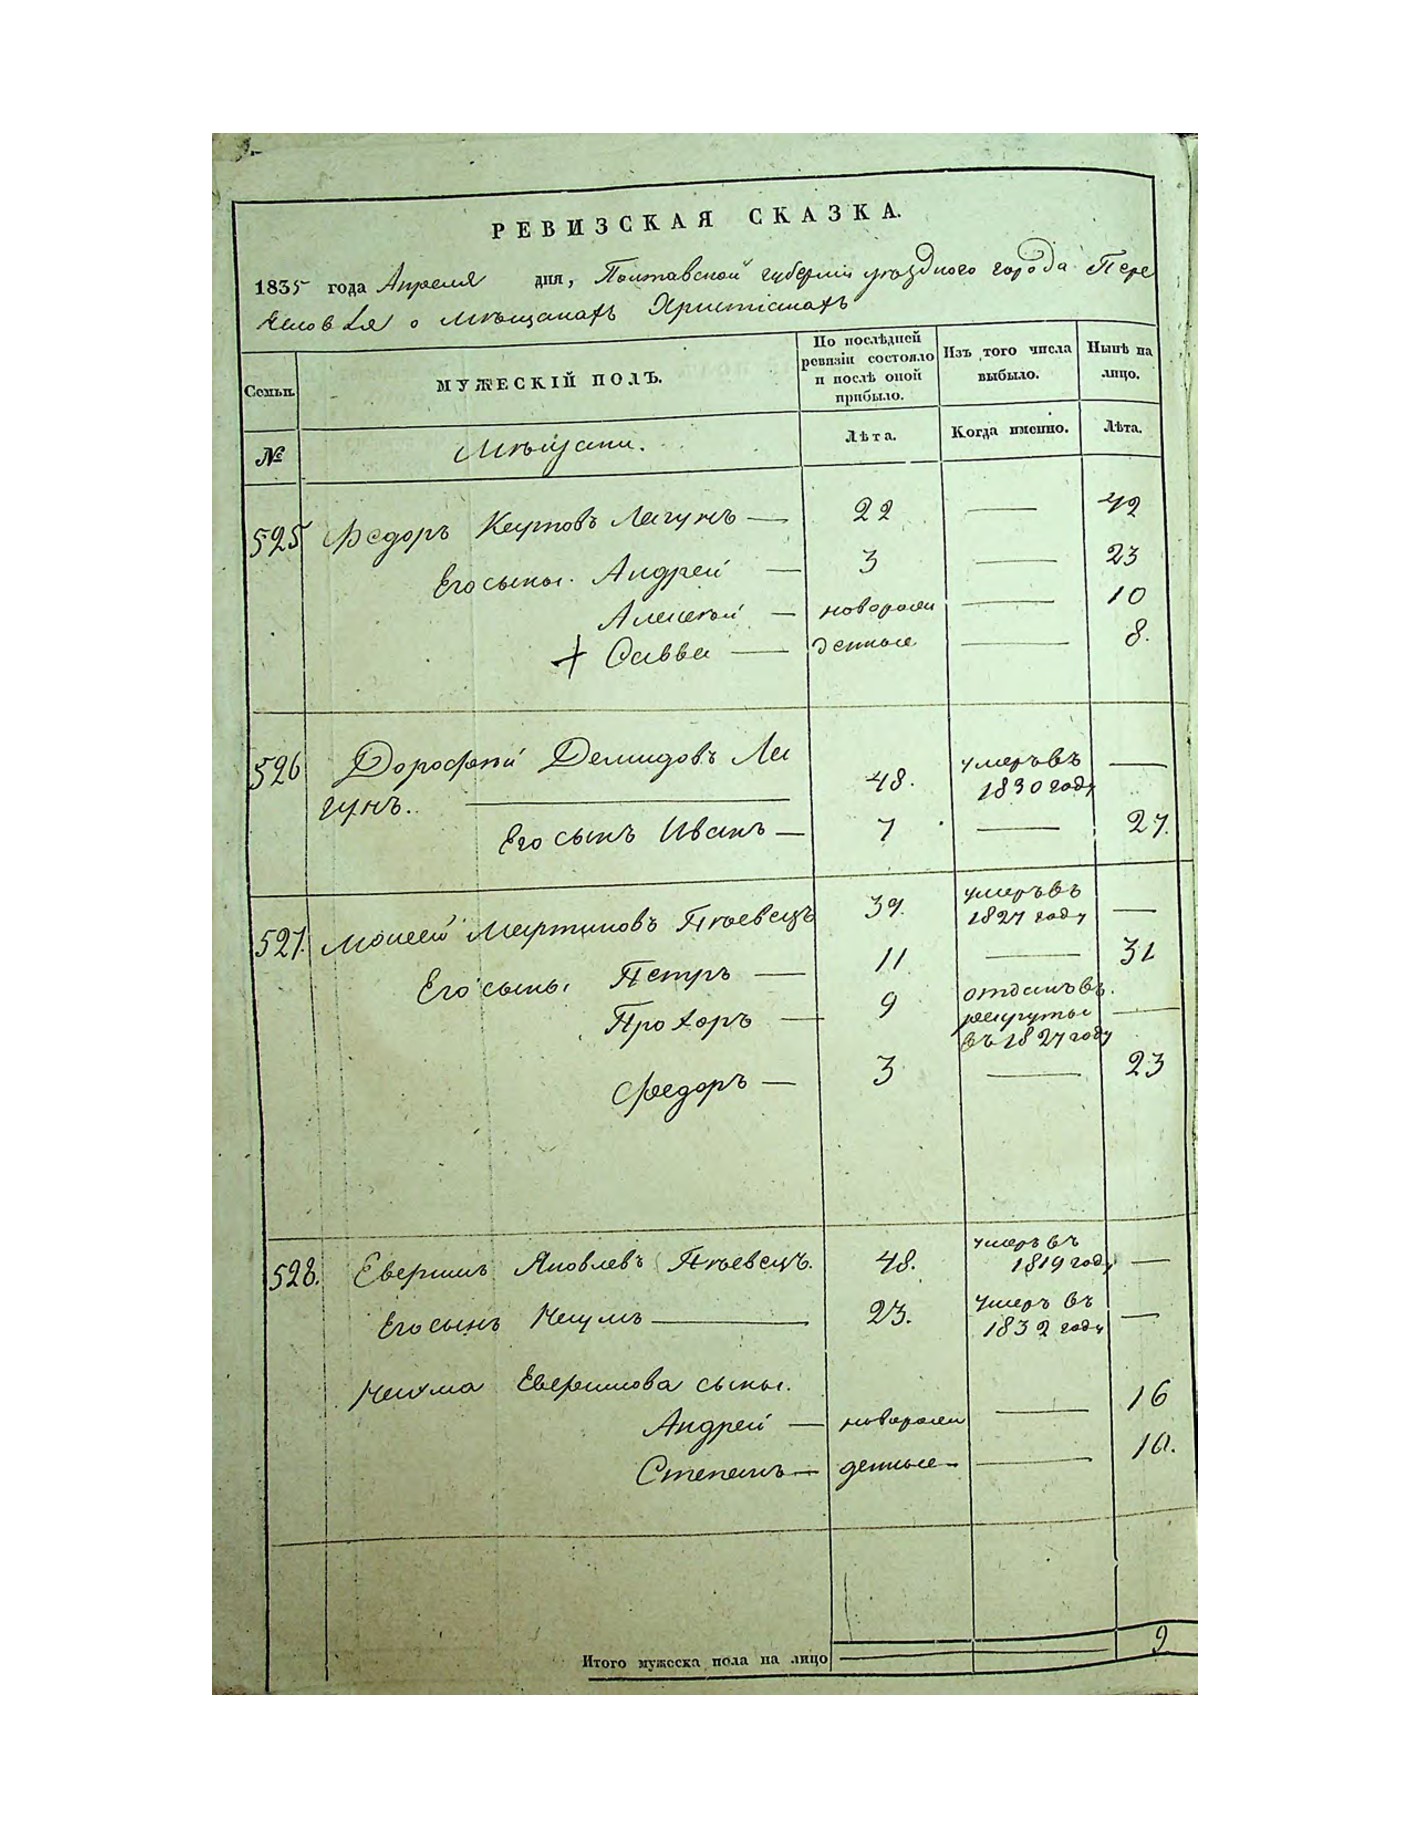 РЕВИЗСКАЯ СКАЗКА.
1835 года Апреля дня, Полтавской губернiи уѣзднаго города Пере
яслов ля о мѣщанахъ Христiанахъ
Семьи.
МУЖЕСКIЙ ПОЛЪ.
По послѣдней ревизiи состояло и послѣ оной прибыло.
Изъ того числа выбыло.
Нынѣ на лицо.
№
Мѣщани.
Лѣта.
Когда именно.
Лѣта.
525 Федоръ Карповъ Лагунъ — 22 — 42
Его сыны. Андрей — 3 — 23
Алексѣй — новорожден — 10
+ Савва — денные — 8.
526 Дорофѣй Демидовъ Ла
гунъ. — 48. умеръ въ 1830 году —
Его сынъ Иванъ — 7 — 27.
527. Моисей Мартиновъ Пѣвецъ 39. умеръ въ 1827 году —
Его сыны Петръ — 11 — 31
Прохоръ — 9 отданъ въ рекруты въ 1827 году —
Федоръ — 3 — 23
528. Яковлевъ Пѣвецъ. 48. умеръ въ 1819 году —
Его сынъ Наумъ — 23. умеръ въ 1832 году —
Наума сыны.
Андрей — новорож — 16
Степанъ — денные — 10.
Итого мужеска пола на лицо — 9